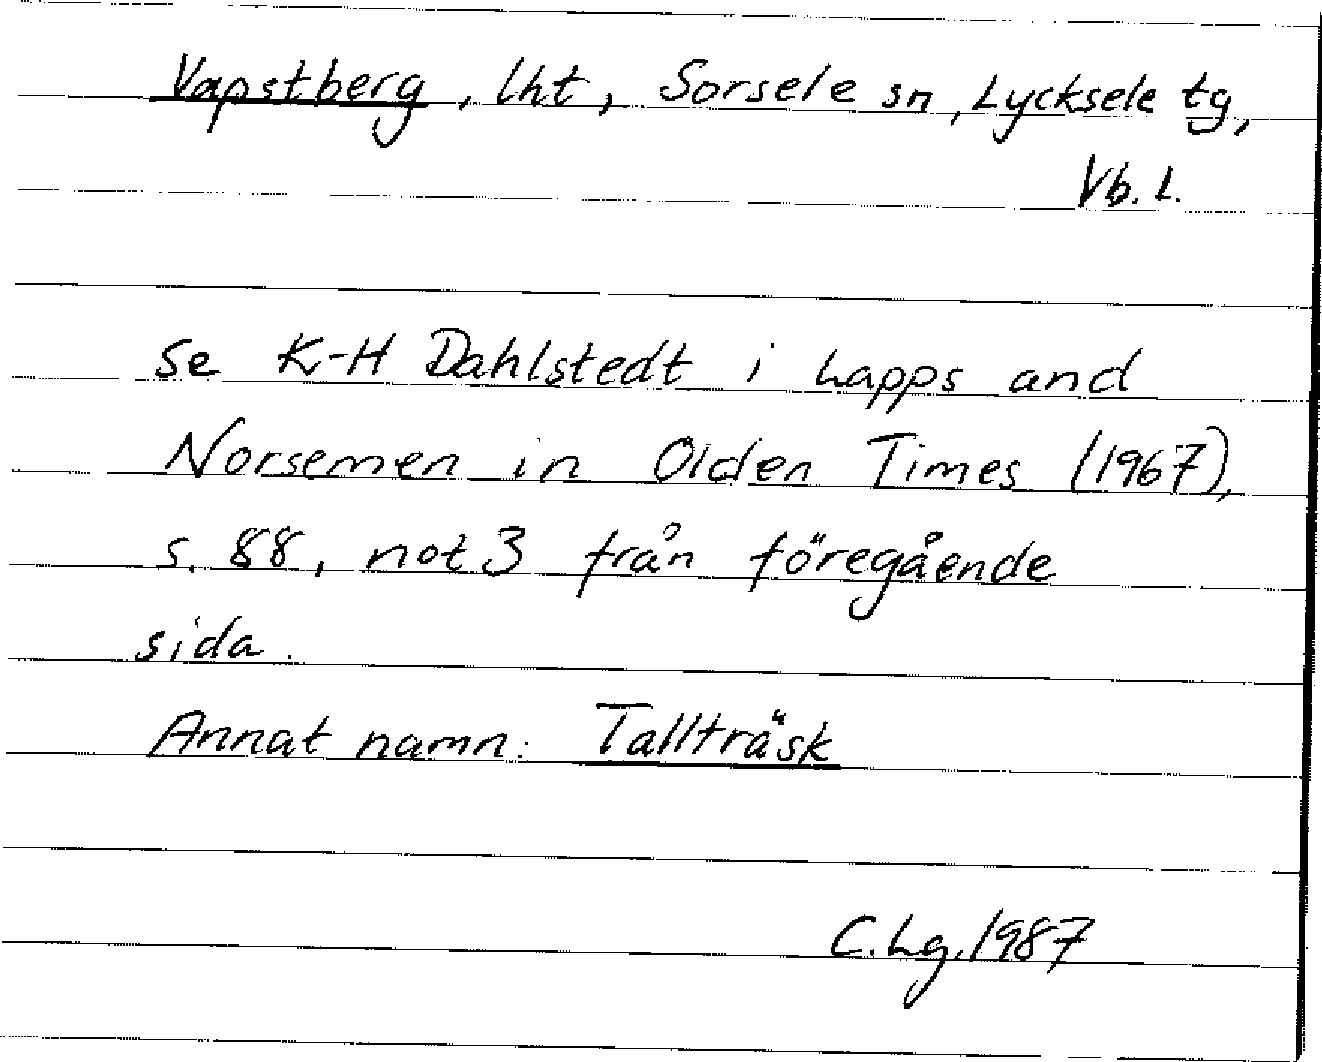 Vapstberg, lht, Sorsele sn, Lycksele tg,
Vb. L.
Se K-H Dahlstedt i Lapps and
Norsemen in Olden Times (1967),
s. 88, not 3 från föregående
sida.
Annat namn: Tallträsk
C.Lg.1987